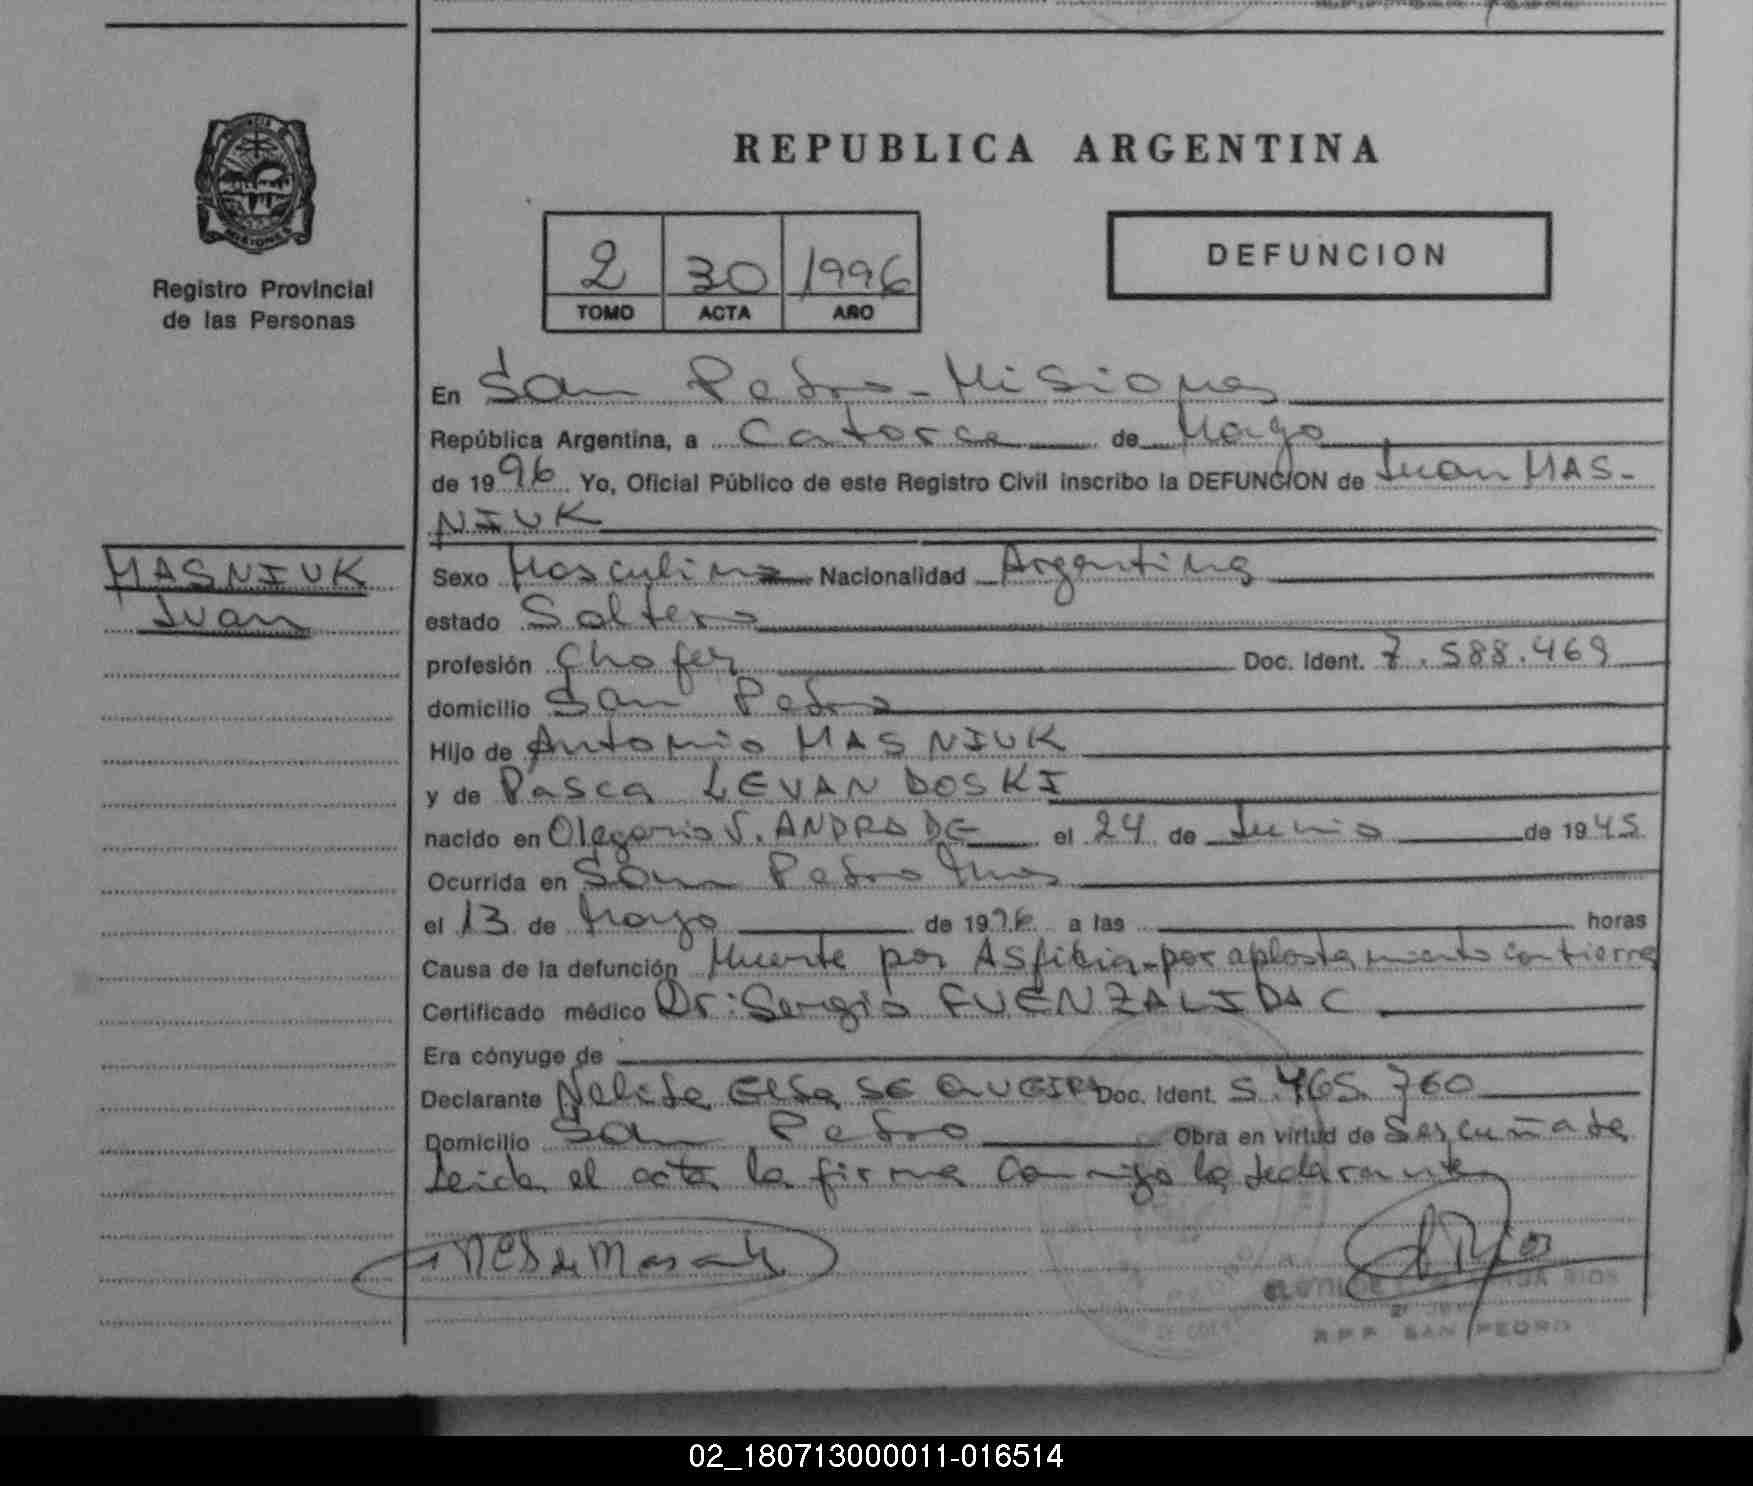 REPUBLICA ARGENTINA
PROVINCIA DE MISIONES
Registro Provincial
de las Personas
2 30 1996
TOMO ACTA AÑO
DEFUNCION
En San Pedro - Misiones
República Argentina, a Catorce de Mayo
de 1996 Yo, Oficial Público de este Registro Civil inscribo la DEFUNCION de Juan MAS-
NIUK
MASNIUK
Juan
Sexo Masculino Nacionalidad Argentina
estado Soltero
profesión Chofer Doc. Ident. 7.588.469
domicilio San Pedro
Hijo de Antonio MASNIUK
y de Pasca LEVANDOSKI
nacido en Olegario V. ANDRADE el 24 de Junio de 1945
Ocurrida en San Pedro Mnes
el 13 de Mayo de 1996 a las horas
Causa de la defunción Muerte por Asfixia-por aplastamiento con tierra
Certificado médico Dr: Sergio FUENZALIDA C
Era cónyuge de
Declarante Nelida Elsa DE QUEIR Doc. Ident. 5.465.760
Domicilio San Pedro Obra en virtud de Ser cuñada
Leida el acta la firma conmigo la declarante
RIOS
R P P SAN PEDRO
02_180713000011-016514